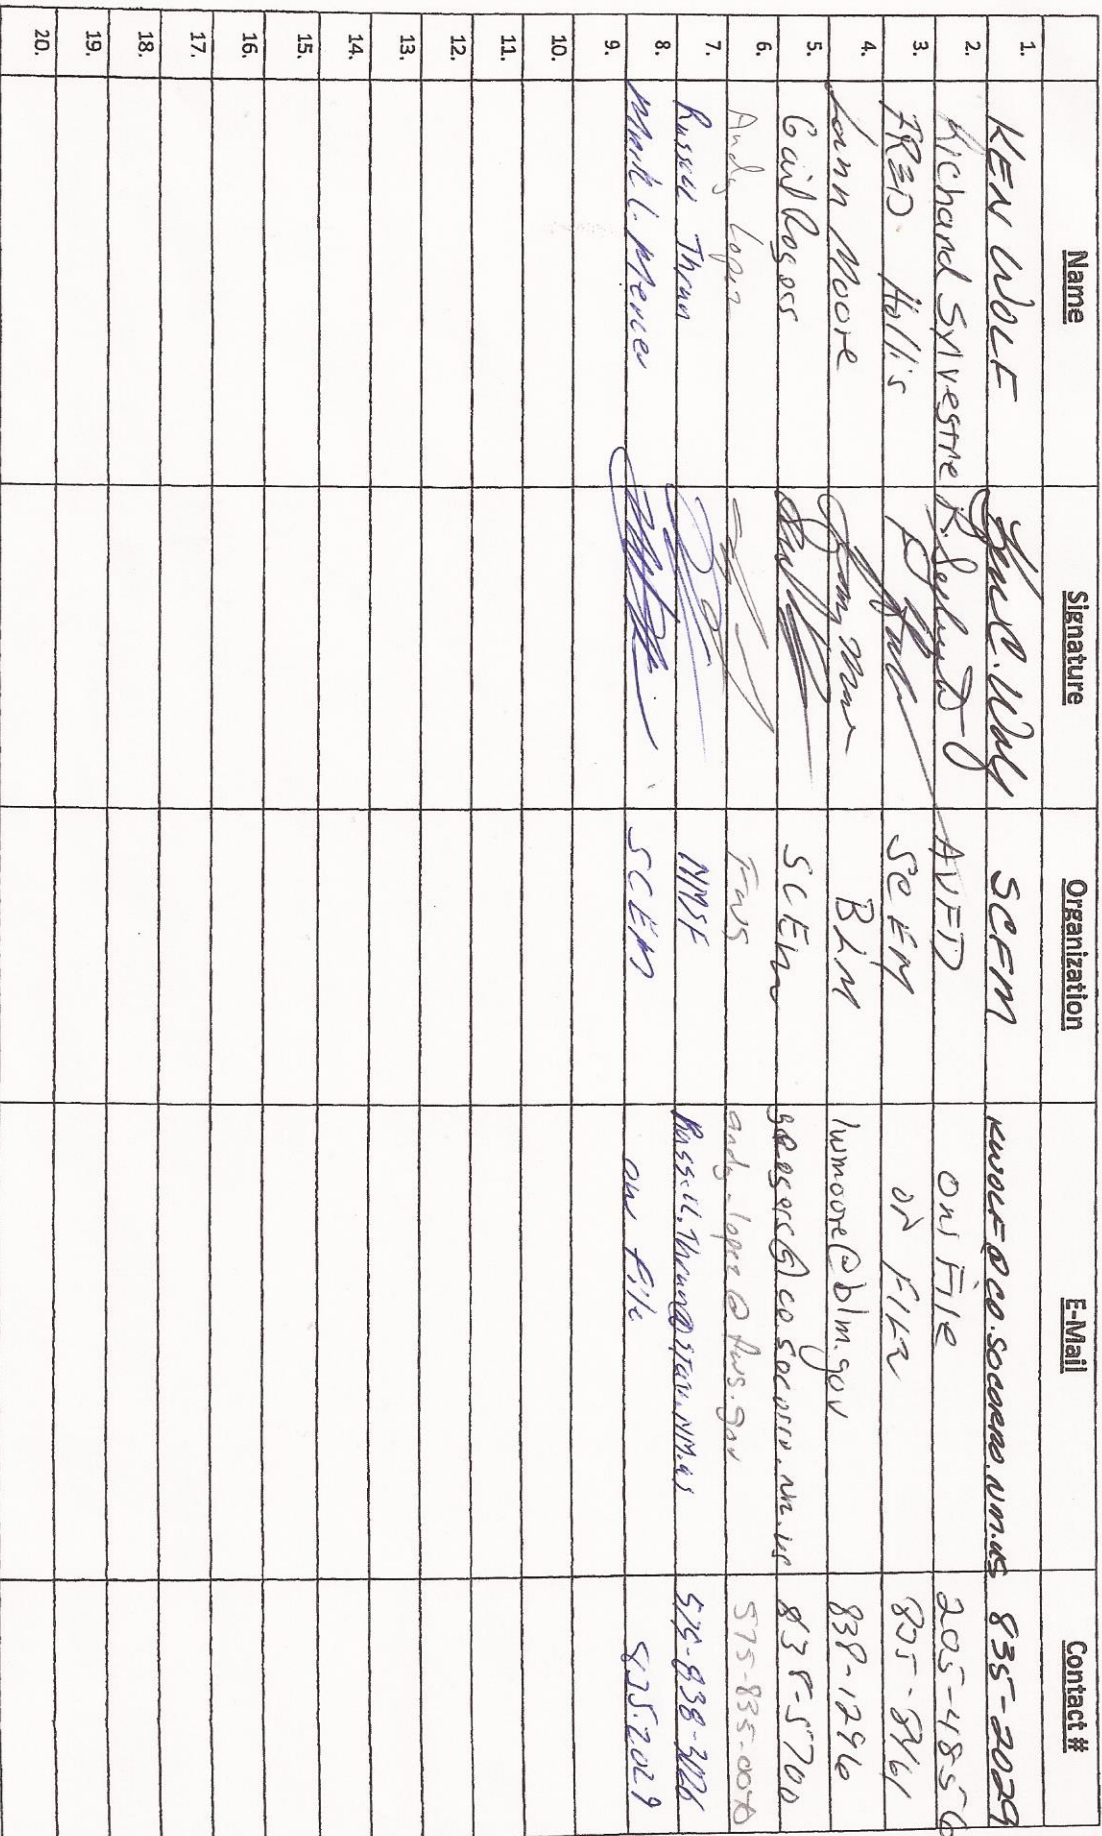 Name Signature Organization E-Mail Contact #
1. KEN WOLF Ken C. Wolf SCFM KWOLF@CO.SOCORRO.NM.US 835-2029
2. Richard Sylvestre AVFD ON File 205-4856
3. FRED Hollis SCEM ON FILE
4. Lann Moore BLM lwmoore@blm.gov 838-1296
5. Gail Rogers SCEM grogers@co.socorro.nm.us 838-5700
6. Andy Lopez FWS andy_lopez@fws.gov
7. Russell Thrun NMSF Russell.Thrun@state.NM.us
8. Mark L. SCEM on file 835.2029
9.
10.
11.
12.
13.
14.
15.
16.
17.
18.
19.
20.